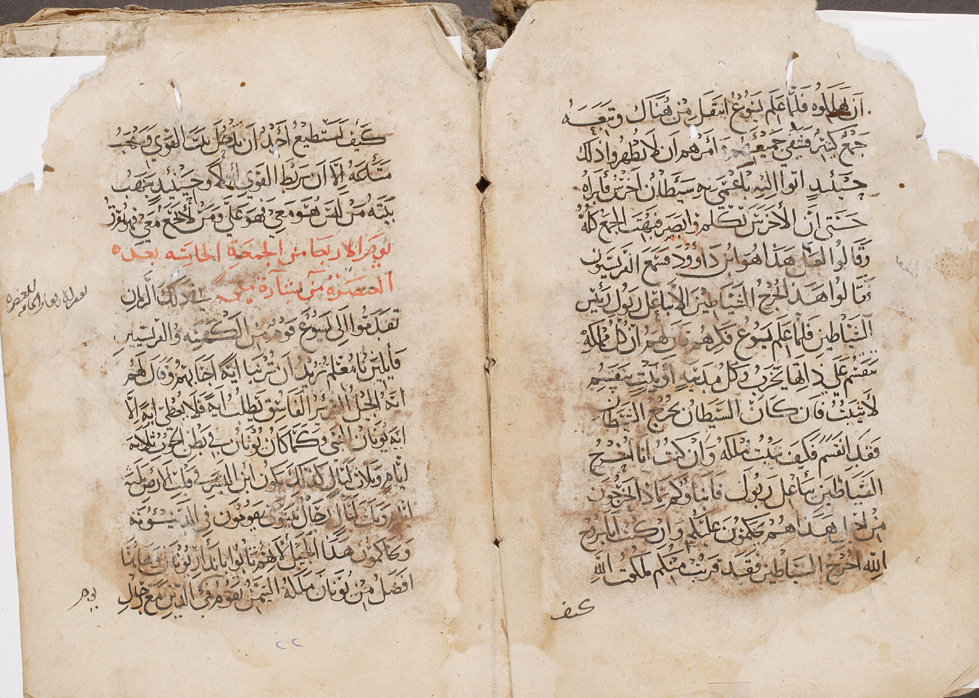 ان يهلكوه فلما علم يسوع انتقل من هناك وتبعه
جمع كثير فشفى جميعهم وامرهم ان لا يظهروا ذلك
حينئذ اتوا اليه باعمى به شيطان اخرس فابراه
حتى ان الاخرس تكلم وابصر فبهت الجمع كله
وقالوا لعل هذا هو ابن داوود فسمع الفريسيون
فقالوا هذا يخرج الشياطين الا بباعل زبول رئيس
الشياطين فلما علم يسوع فكرهم قال لهم ان كل مملكة
تنقسم على ذاتها تخرب وكل مدينة او بيت ينقسم
لا يثبت فان كان الشيطان يخرج الشيطان
فقد انقسم فكيف يثبت ملكه وان كنت انا اخرج
الشياطين بباعل زبول فابناوكم بماذا يخرجون
من اجل هذا هم يحكمون عليكم وان كنت انا بروح
الله اخرج الشياطين فقد قربت منكم ملكوت الله
كيف
كيف يستطيع احد ان يدخل بيت القوي وينهب
متاعه الا ان يربط القوي اولا وحينئذ ينهب
بيته من ليس هو معي فهو علي ومن لا يجمع معي فهو يفرق
يوم الاربعا من الجمعة الخامسه بعد
العنصره من بشارة متى في ذلك الزمان
تقدموا الى يسوع قوم من الكتبه والفريسيين
قايلين يا معلم نريد ان ترينا ايه اجابهم وقال لهم
الجيل الشرير الفاسق يطلب ايه فلا يعطى ايه الا
اية يونان النبي وكما كان يونان في بطن الحوت ثلاثة
ايام وثلاث ليال كذلك يكون ابن البشر في قلب الارض ثلثة
ايام وثلث ليال رجال نينوى يقومون في الدينونه
ويحاكمون هذا الجيل لانهم تابوا بانذار يونان وها هنا
افضل من يونان ملكة التيمن تقوم في الدين مع رجال
٢٢